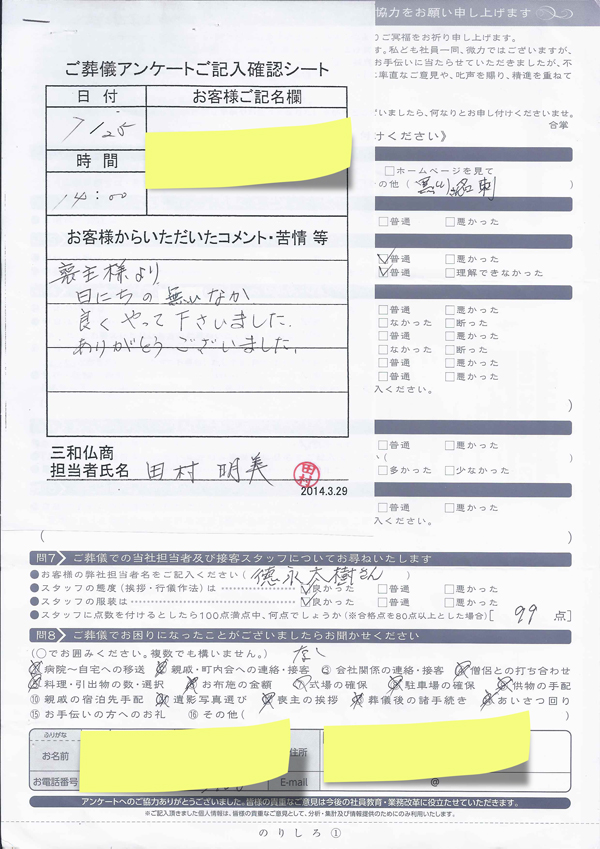 協力をお願い申し上げます
りご冥福をお祈り申し上げます。
す。私ども社員一同、微力ではございますが、
お手伝いに当たらせていただきましたが、不
に率直なご意見や、叱声を賜り、精進を重ねて
いましたら、何なりとお申し付けくださいませ。
合掌
けください》
□ホームページを見て
の他(
□普通 □悪かった
☑普通 □悪かった
☑普通 □理解できなかった
□普通 □悪かった
□なかった □断った
□普通 □悪かった
□なかった □断った
□普通 □悪かった
入ください。
)
□普通 □悪かった
い(
□多かった □少なかった
□普通 □悪かった
入ください。
( )
ご葬儀アンケートご記入確認シート
日付 お客様ご記名欄
7/25
時間
14:00
お客様からいただいたコメント・苦情 等
喪主様より
日にちの無いなか
良くやって下さいました.
ありがとうございました.
三和仏商
担当者氏名 田村 明美
田村
2014.3.29
問7 ご葬儀での当社担当者及び接客スタッフについてお尋ねいたします
●お客様の弊社担当者名をご記入ください( 徳永太樹さん )
●スタッフの態度(挨拶・行儀作法)は ☑良かった □普通 □悪かった
●スタッフの服装は ☑良かった □普通 □悪かった
●スタッフに点数を付けるとしたら100点満点中、何点でしょうか(※合格点を80点以上とした場合)[ 99 点]
問8 ご葬儀でお困りになったことがございましたらお聞かせください
(○でお囲みください。複数でも構いません。) なし
病院〜自宅への移送 親戚・町内会への連絡・接客 ③会社関係の連絡・接客 僧侶との打ち合わせ
料理・引出物の数・選択 お布施の金額 ⑦式場の確保 駐車場の確保 供物の手配
⑩親戚の宿泊先手配 遺影写真選び 喪主の挨拶 葬儀後の諸手続き あいさつ回り
⑮お手伝いの方へのお礼 ⑯その他( )
ふりがな
お名前
住所
お電話番号
E-mail @
アンケートへのご協力ありがとうございました。皆様の貴重なご意見は今後の社員教育・業務改革に役立たせていただきます。
※ご記入頂きました個人情報は、皆様の貴重なご意見として、分析・集計及び情報提供のためにのみ利用いたします。
のりしろ①